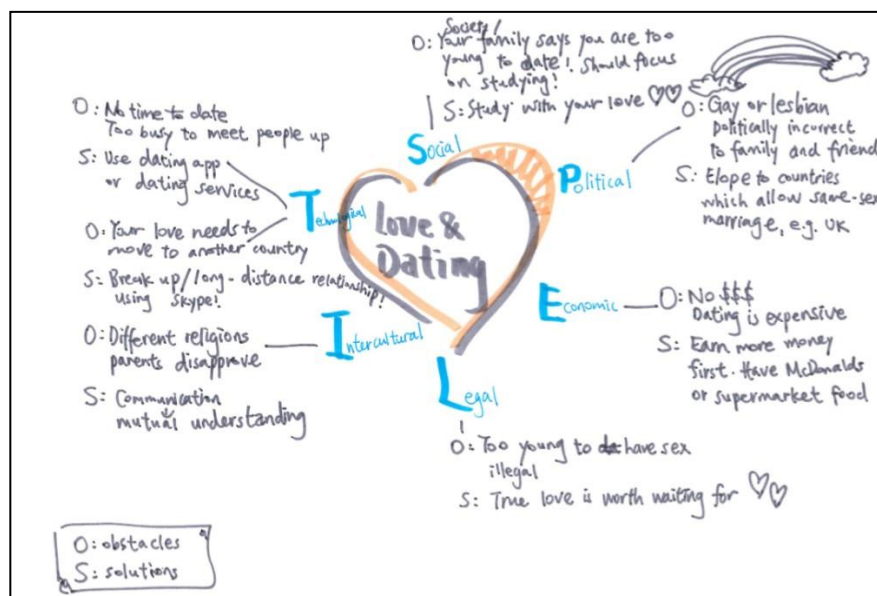 Love &
Dating
Social
Society/
O: Your family says you are too
young to date! Should focus
on studying!
S: Study with your love
Political
O: Gay or lesbian
politically incorrect
to family and friend
S: Elope to countries
which allow same-sex
marriage, e.g. UK
Economic
O: No $$$
Dating is expensive
S: Earn more money
first. Have McDonalds
or supermarket food
Legal
O: Too young to have sex
illegal
S: True love is worth waiting for
Intercultural
O: Different religions
parents disapprove
S: Communication
mutual understanding
Technological
O: No time to date
Too busy to meet people up
S: Use dating app
or dating services
O: Your love needs to
move to another country
S: Break up/long-distance relationship!
using Skype!
O: obstacles
S: solutions